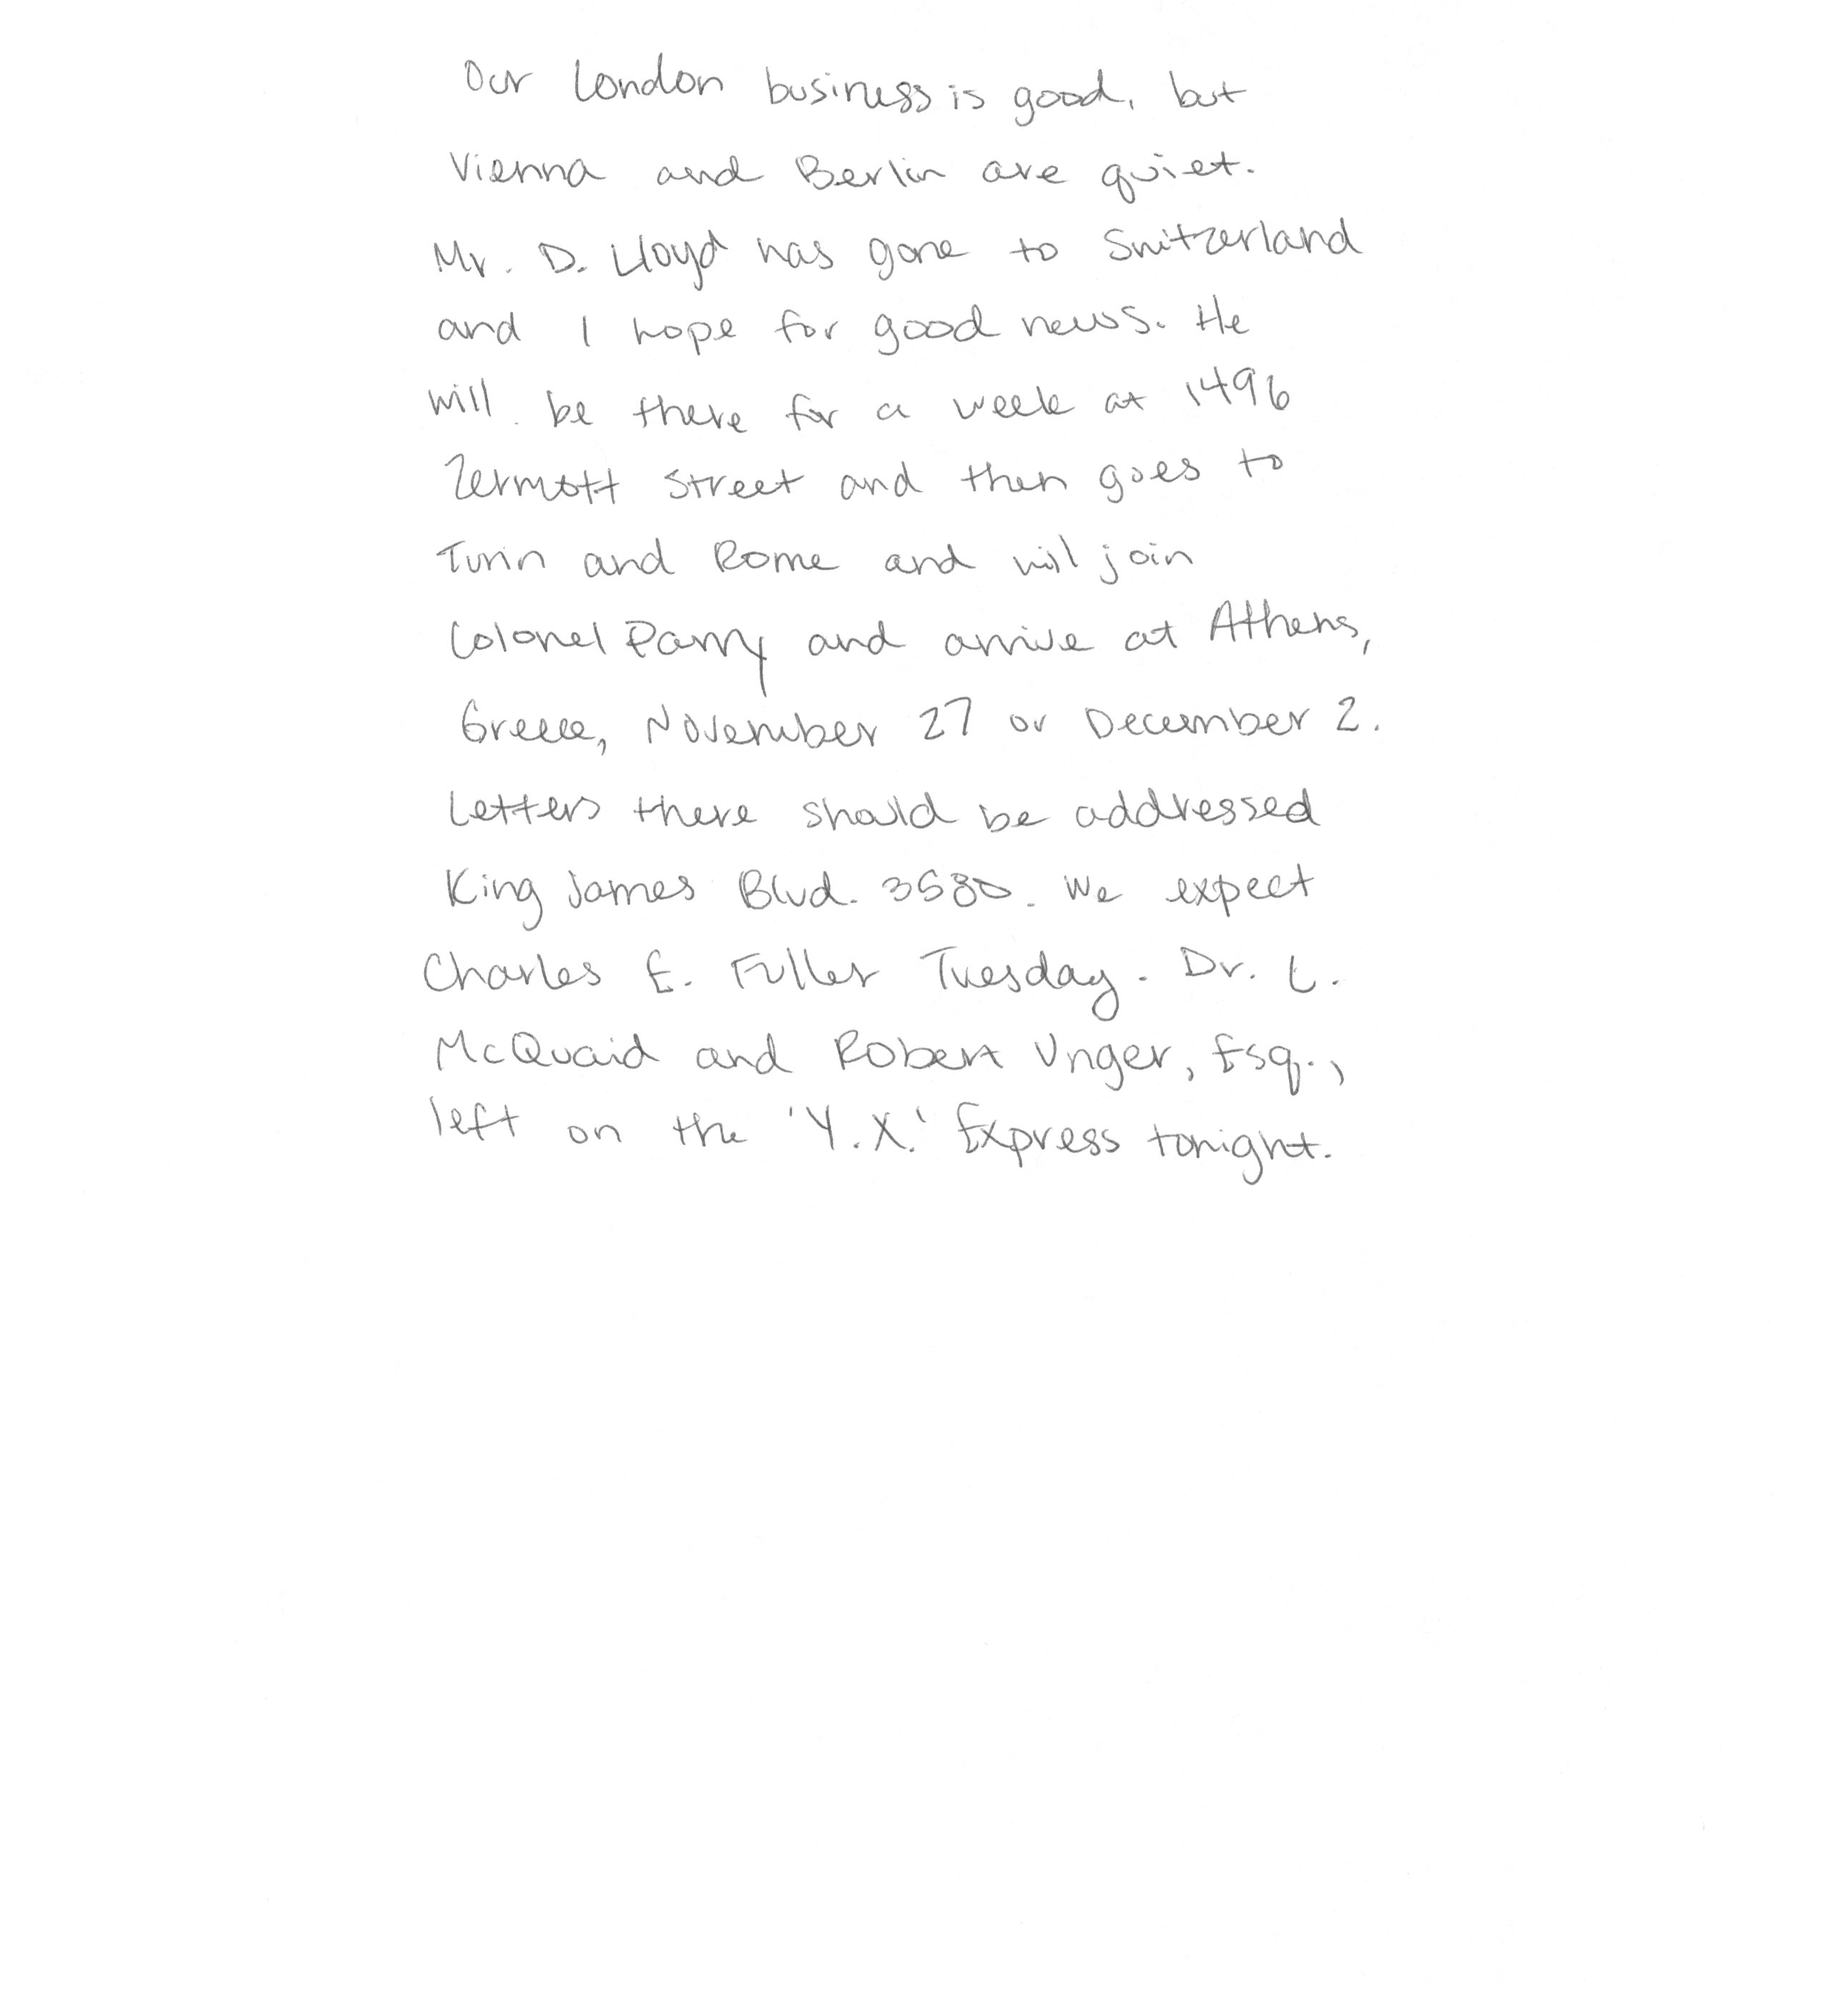 Our London business is good, but
Vienna and Berlin are quiet.
Mr. D. Lloyd has gone to Switzerland
and I hope for good news. He
will be there for a week at 1496
Zermott Street and then goes to
Turin and Rome and will join
Colonel Parry and arrive at Athens,
Greece, November 27 or December 2.
Letters there should be addressed
King James Blvd. 3580. We expect
Charles E. Fuller Tuesday. Dr. L.
McQuaid and Robert Unger, Esq.,
left on the 'Y.X.' Express tonight.